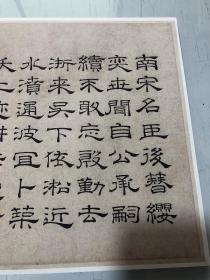 南宋名臣後簪纓
奕世間自公承嗣
續不敢忘殷勤去
浙來吳下依淞近
水濆通波宜卜築